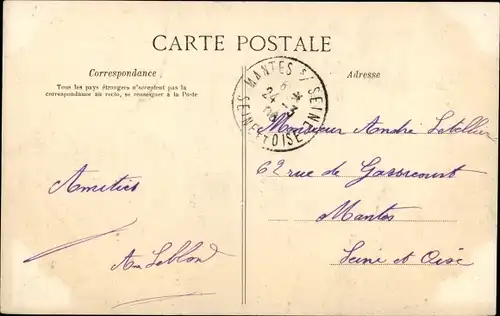 CARTE POSTALE
Correspondance
Tous les pays étrangers n'acceptent pas la
correspondance au recto, se renseigner à la Poste
Adresse
MANTES S/ SEINE
24 -3
SEINE ET OISE
Monsieur André Letellier
62 rue de Gassicourt
Mantes
Seine et Oise
Amitiés
Leblond